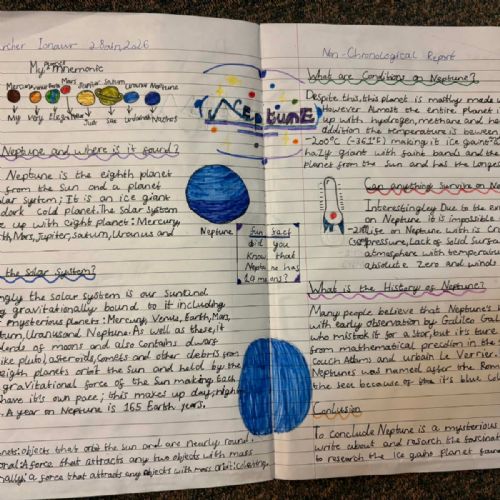 Ionawr 2026
My planet Mnemonic
Mars Saturn Uranus Neptune
My Very Just Us Nachos
Neptune and where is it found?
Neptune is the eighth planet
from the Sun and a planet
solar system; It is an ice giant
dark cold planet. The Solar system
up with eight planet: Mercury,
Earth, Mars, Jupiter, Saturn, Uranus and
the Solar System?
the solar system is our Sun and
gravitationally bound to it including
mysterious planets: Mercury, Venus, Earth, Mars,
Saturn, Uranus and Neptune. As well as these, it
of moons and also contains dwarf
(like pluto), asteroids, Comets and other debris from
planets orbit the Sun and held by the
gravitational force of the Sun making Each
have it's own pace; this makes up day, night
A year on Neptune is 165 Earth years.
planets: objects that orbit the sun and are nearly round.
A force that attracts any two objects with mass
a force that attracts any objects with mass orbit:
NEPTUNE
Neptune
Fun fact
did you
Know that
Neptune has
moons?
Non-Chronological Report
What are Conditions on Neptune?
Despite this, this planet is mostly made
However Almost the entire planet i
up with hydrogen, methane and he
addition the temperature is between
-200°C (-361°F) making it ice giant
hazy giant with faint bands and the
planet from the Sun and has the longes
Can anything Survive on N
Interestingly Due to the ex
on Neptune it is impossible
Life on Neptune with is Cr
pressure, Lack of Solid Surfac
atmosphere with temperatur
absolute Zero and winds
What is the History of Neptune?
Many people believe that Neptune's
with early observation by Galileo Gali
who mistook it for a star but it's ture
from mathematical precdion in the
Adams and Urbain Le Verrier.
Neptunes was named after the Roma
the sea because of it's blue Colo
Conclusion
To conclude Neptune is a mysterious
write about and research the fascinat
to research the Ice giant Planet found